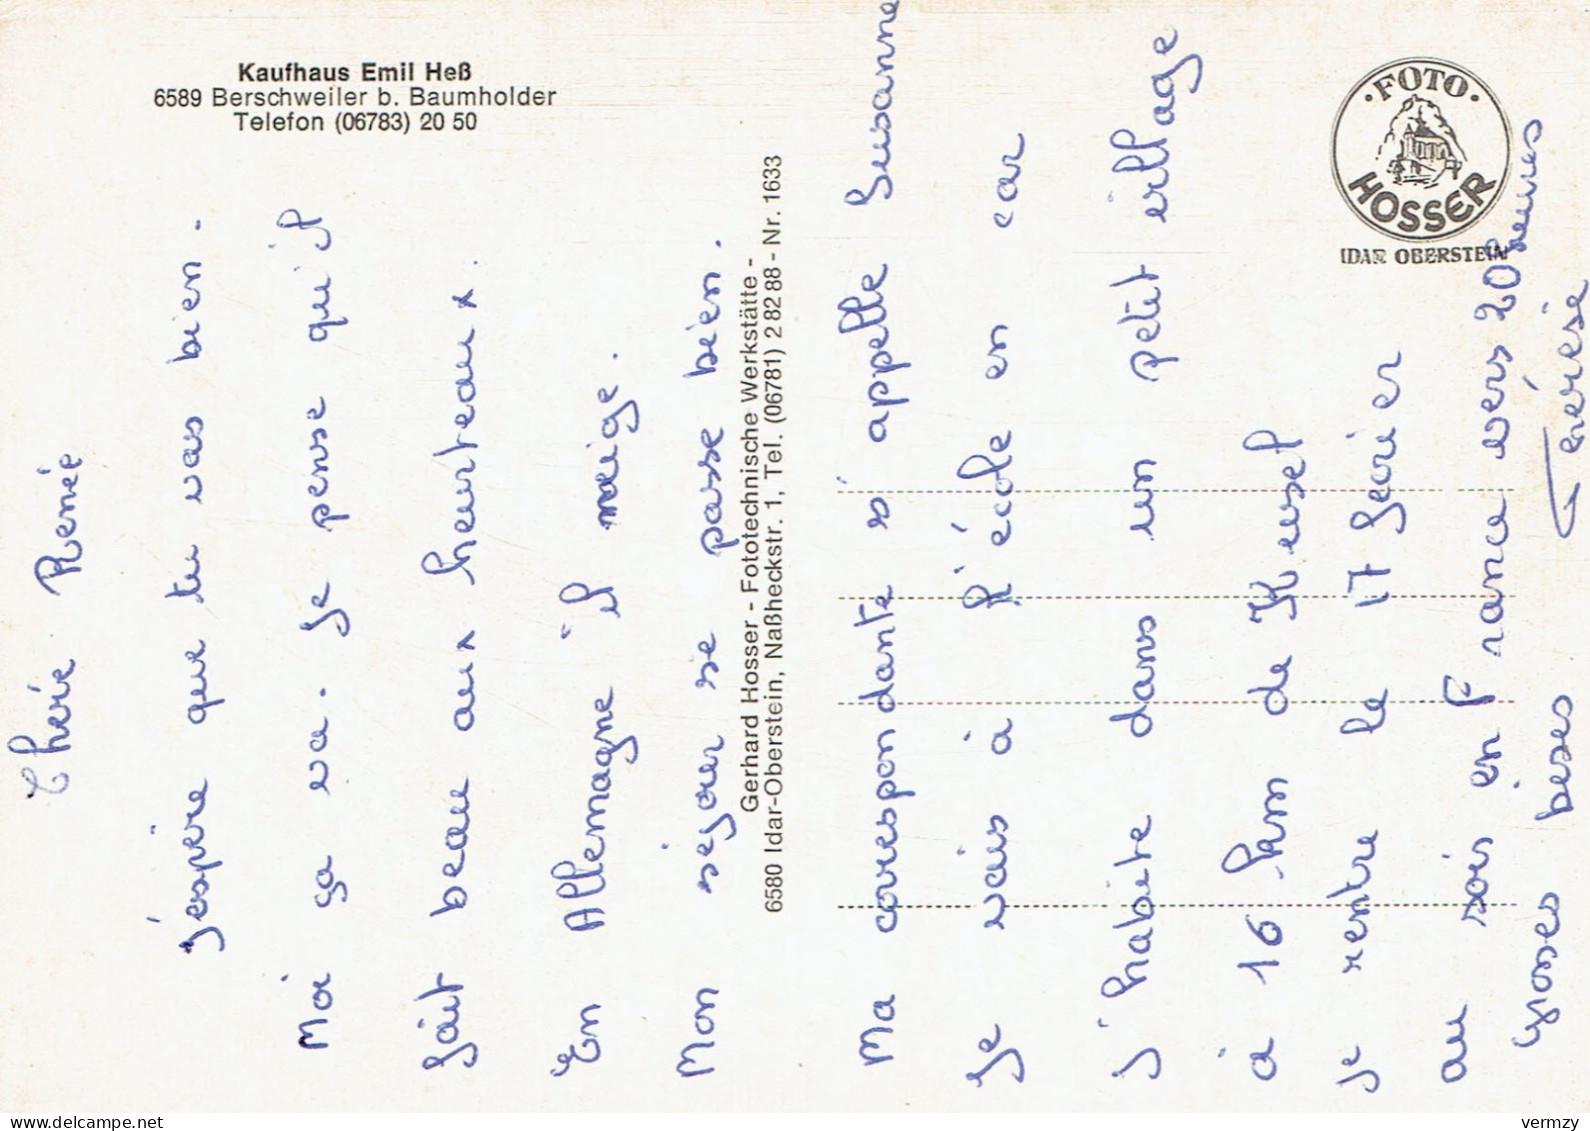 Kaufhaus Emil Heß
6589 Berschweiler b. Baumholder
Telefon (06783) 20 50
Gerhard Hosser - Fototechnische Werkstätte -
6580 Idar-Oberstein, Naßheckstr. 1, Tel. (06781) 2 82 88 - Nr. 1633
· FOTO ·
HOSSER
IDAR OBERSTEIN
Chérie Renée
j'espère que tu vas bien.
Moi ça va. Je pense qu'il
fait beau aux heurteaux.
En Allemagne il neige.
Mon séjour se passe bien.
Ma correspondante s'appelle Susanne
Je vais à l'école en car
J'habite dans un petit village
à 16 km de Kusel
je rentre le 17 février
au soir en France vers 20 heures
Grosses bises Thérèse
vermzy